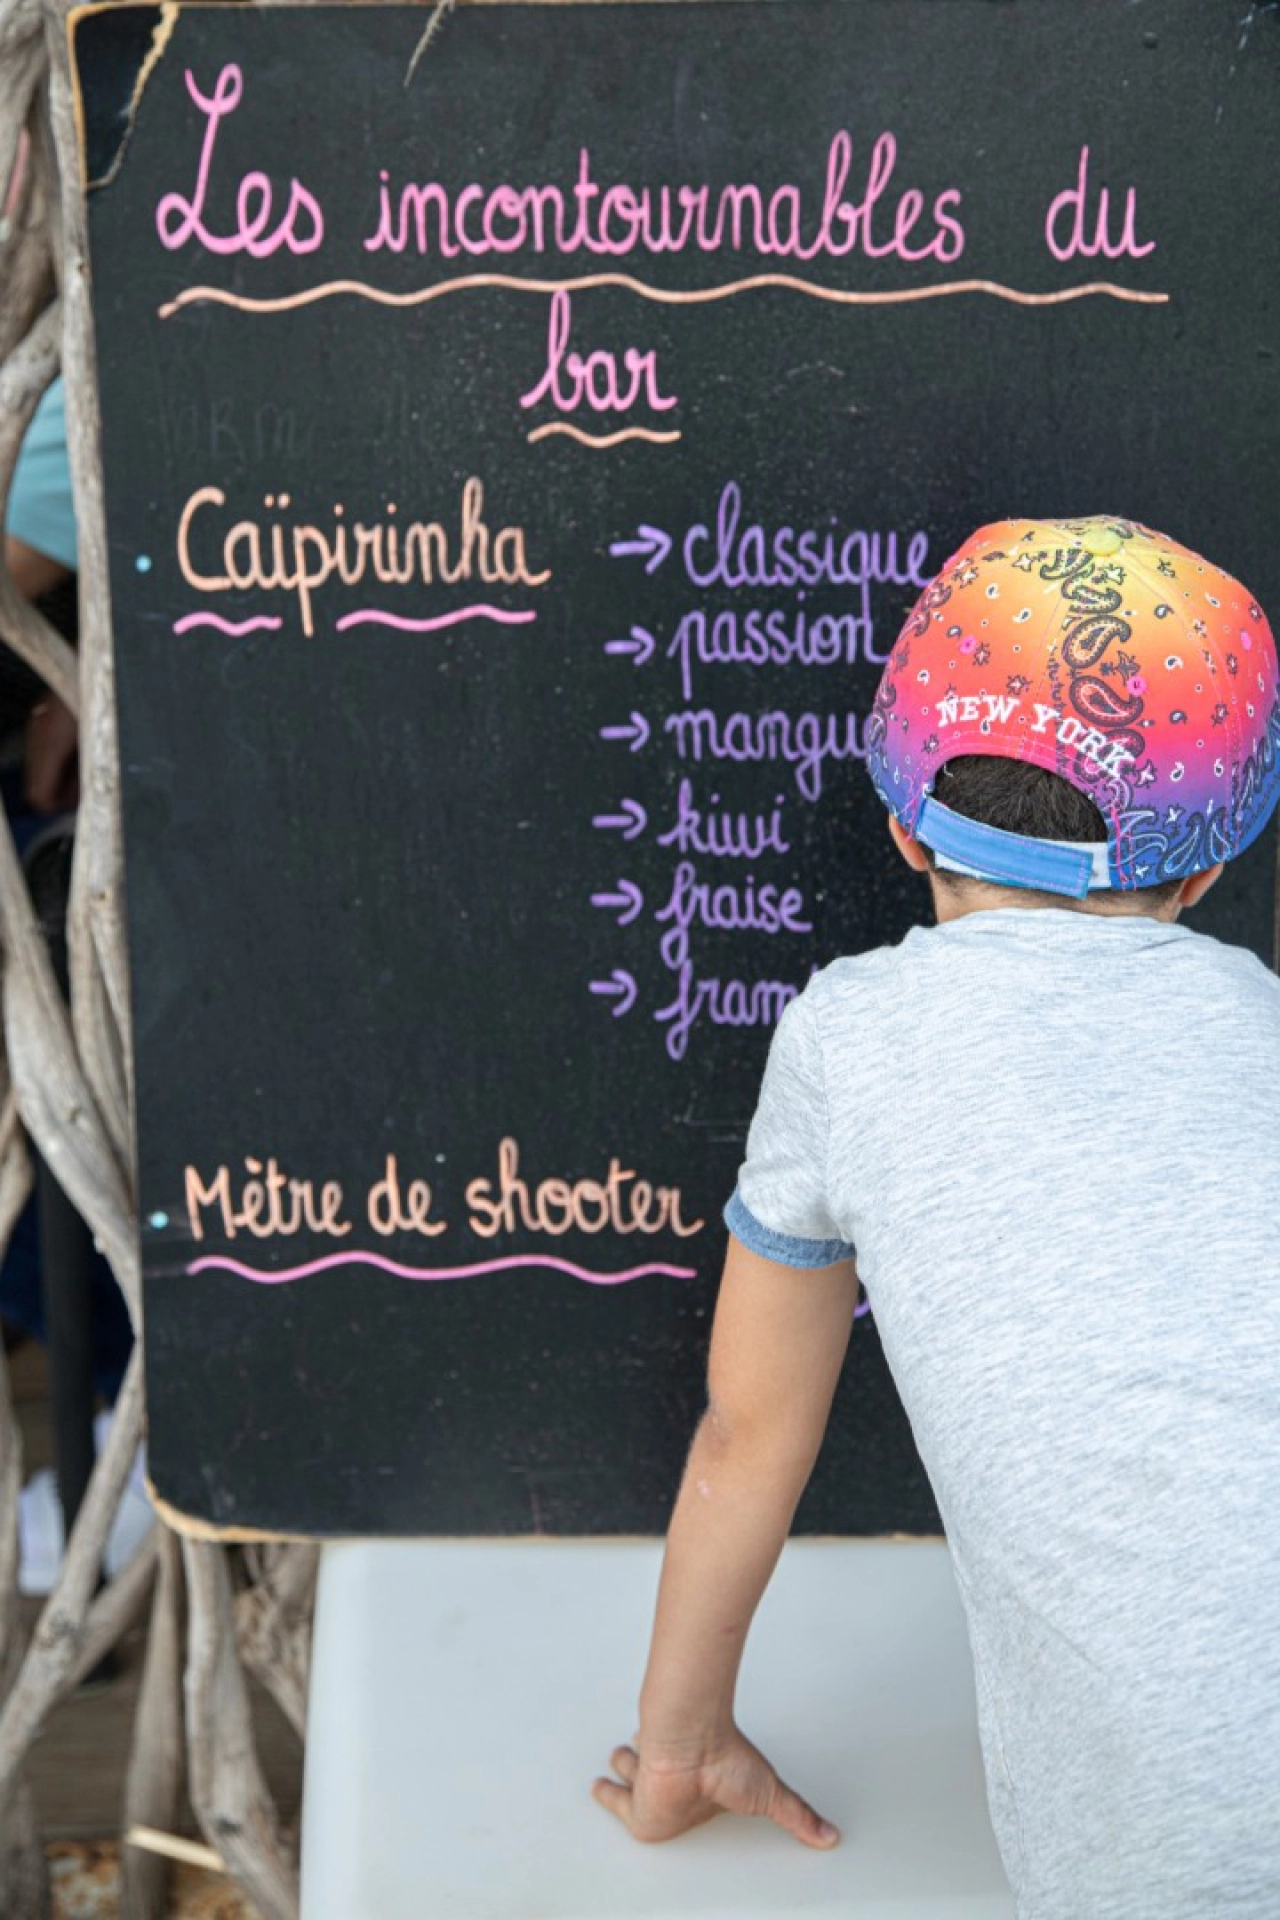 Les incontournables du
bar
Caïpirinha → classique
→ passion
→ mangue
→ kiwi
→ fraise
→ fram
Mètre de shooter
NEW YORK